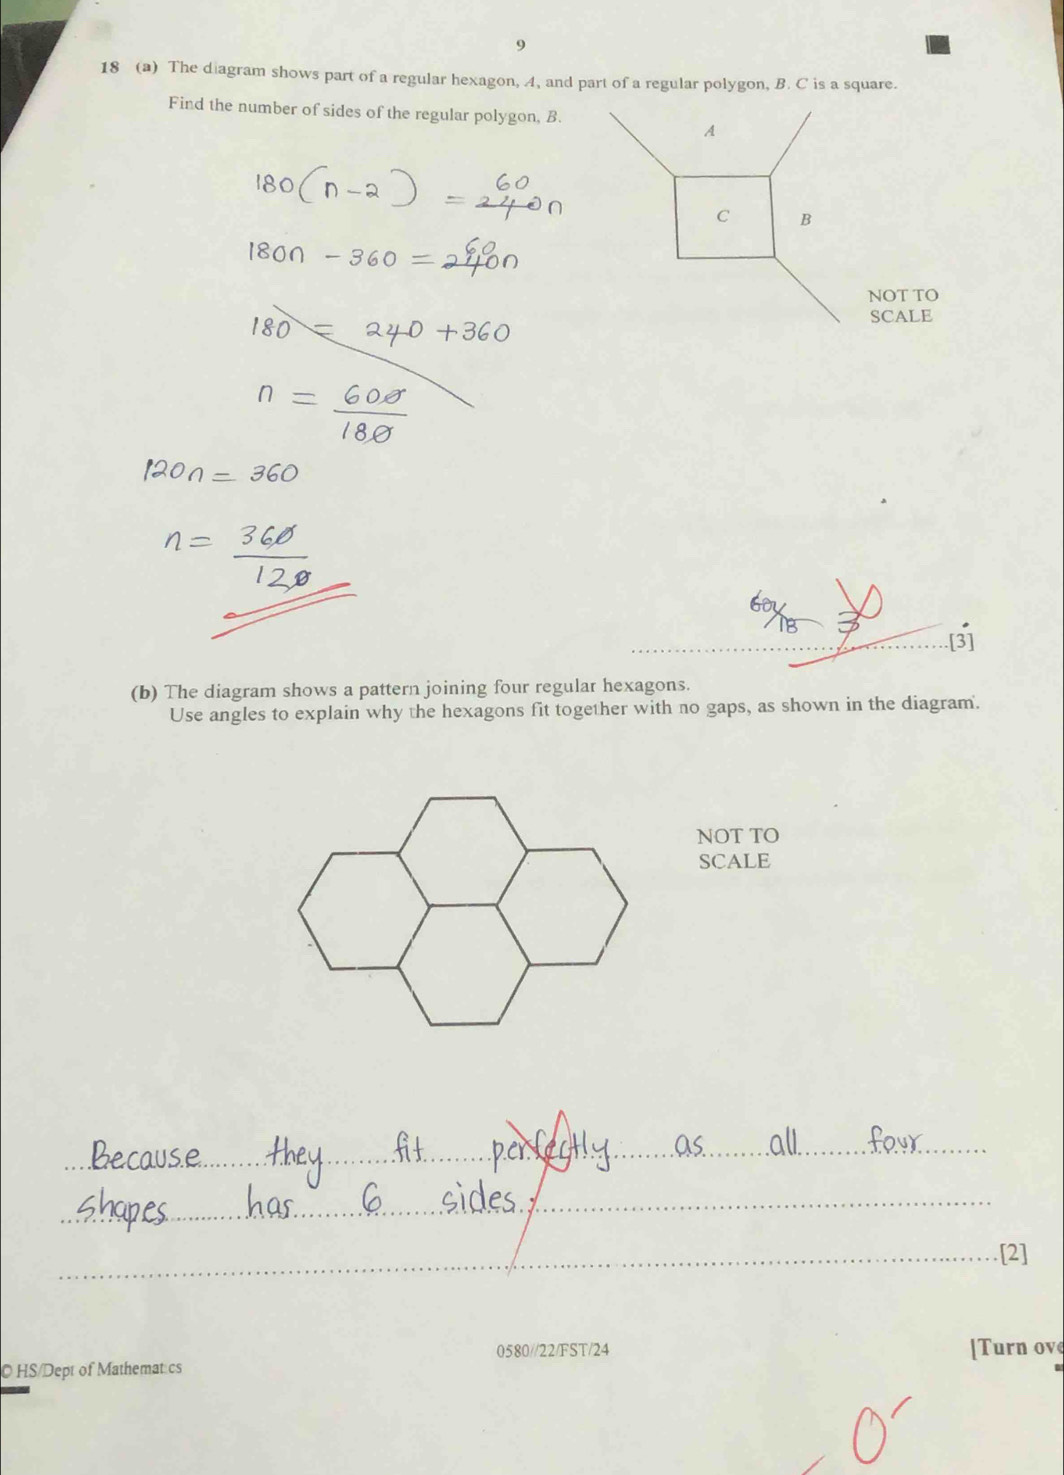 9
18 (a) The diagram shows part of a regular hexagon, A, and part of a regular polygon, B. C is a square.
Find the number of sides of the regular polygon, B.
A
C
B
NOT TO
SCALE
180(n-2) = 240n 60
180n - 360 = 240n 60
180 = 240 + 360
n = 600/180
120n = 360
n = 360/120
60/18 3
[3]
(b) The diagram shows a pattern joining four regular hexagons.
Use angles to explain why the hexagons fit together with no gaps, as shown in the diagram.
NOT TO
SCALE
Because they fit perfectly as all four
shapes has 6 sides.
[2]
0580//22/FST/24
[Turn ove
© HS/Dept of Mathematics
0